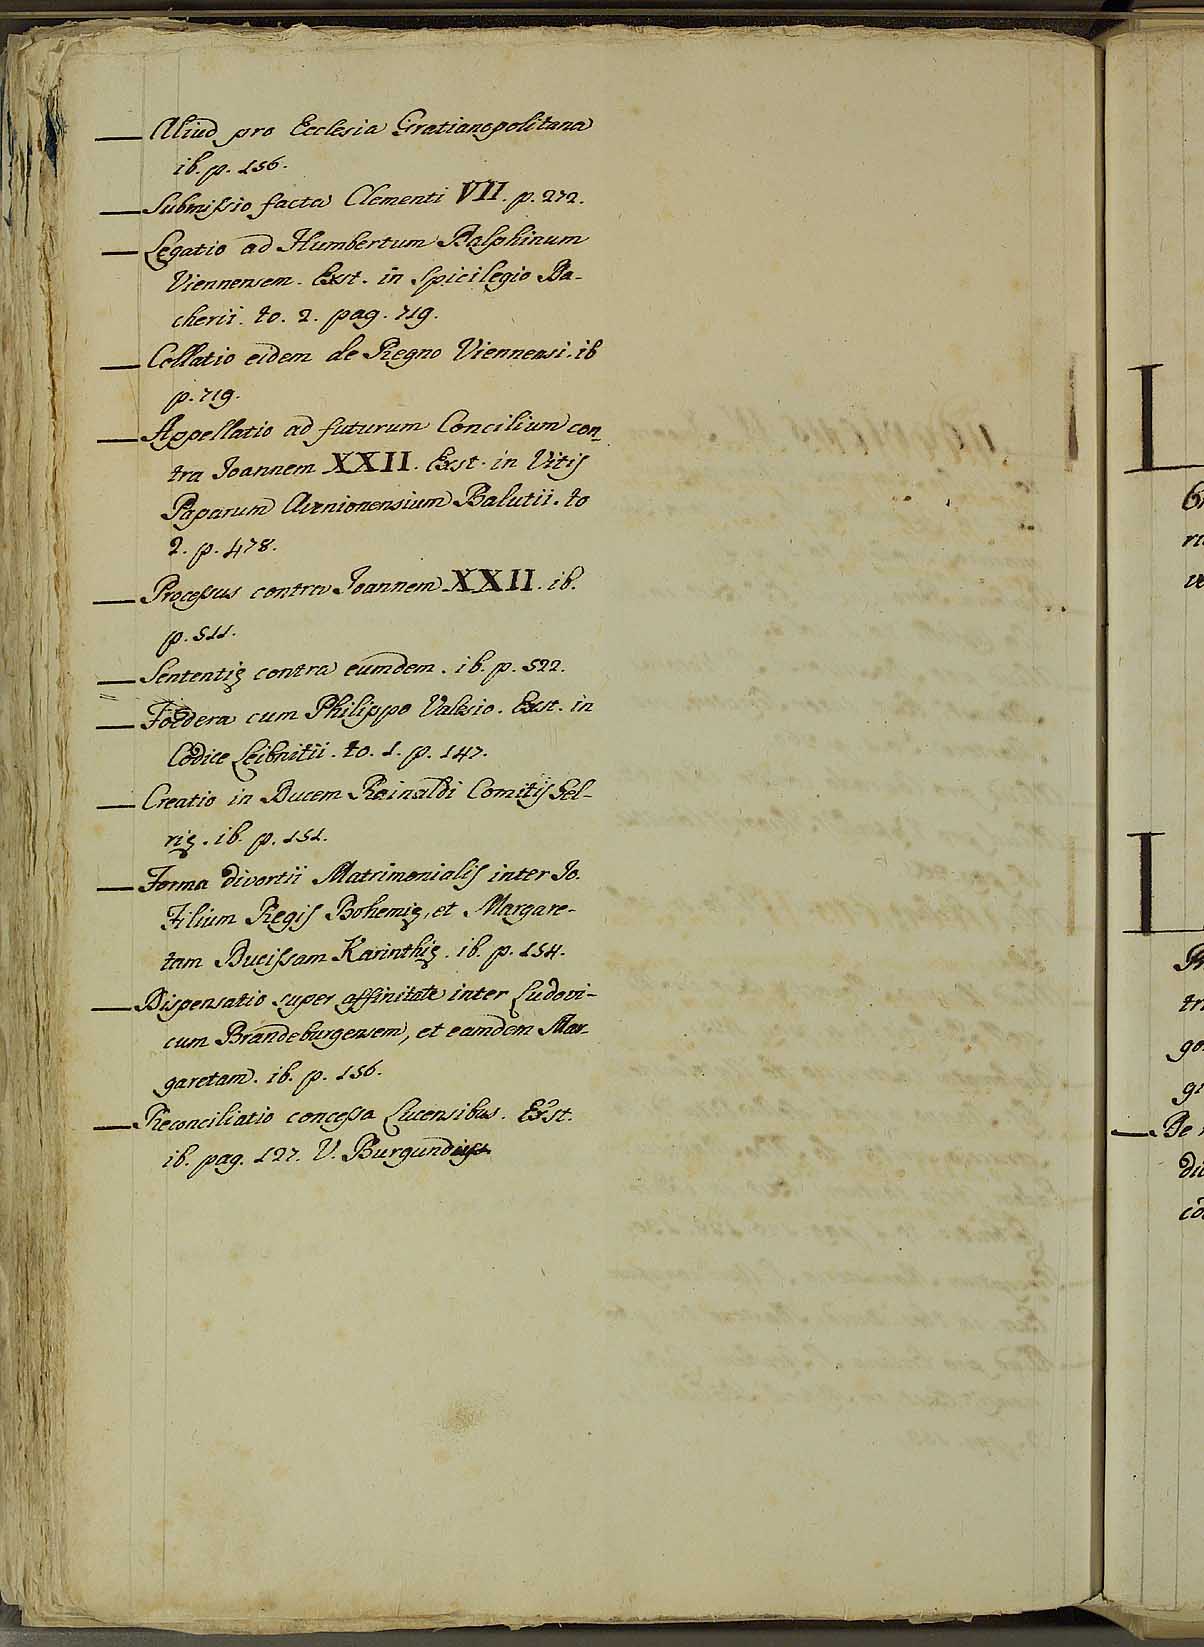 — Aliud pro Ecclesia Gratianopolitana
ib. p. 156.
— Submissio facta Clementi VII. p. 272.
— Legatio ad Humbertum Dalphinum
Viennensem. Exst. in Spicilegio Da-
cherii. to. 2. pag. 719.
— Collatio eidem de Regno Viennensi. ib
p. 719.
— Appellatio ad futurum Concilium con-
tra Joannem XXII. Exst. in Vitis
Paparum Avenionensium Balutii. to
2. p. 478.
— Processus contra Joannem XXII. ib.
p. 511.
— Sententię contra eumdem. ib. p. 522.
— Foedera cum Philippo Valesio. Exst. in
Codice Leibnitii. to. 1. p. 147.
— Creatio in Ducem Reinaldi Comitis Gel-
rię. ib. p. 151.
— Forma divortii Matrimonialis inter Jo.
Filium Regis Bohemię, et Margare-
tam Ducissam Karinthię. ib. p. 154.
— Dispensatio super affinitate inter Ludovi-
cum Brandeburgensem, et eamdem Mar-
garetam. ib. p. 156.
— Reconciliatio concessa Lucensibus. Exst.
ib. pag. 127. V. Burgundius